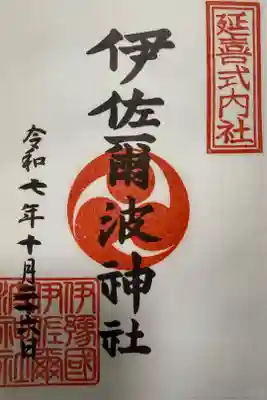 延喜式内社
伊佐爾波神社
令和七年十月二十六日
伊豫國
伊佐爾
波神社